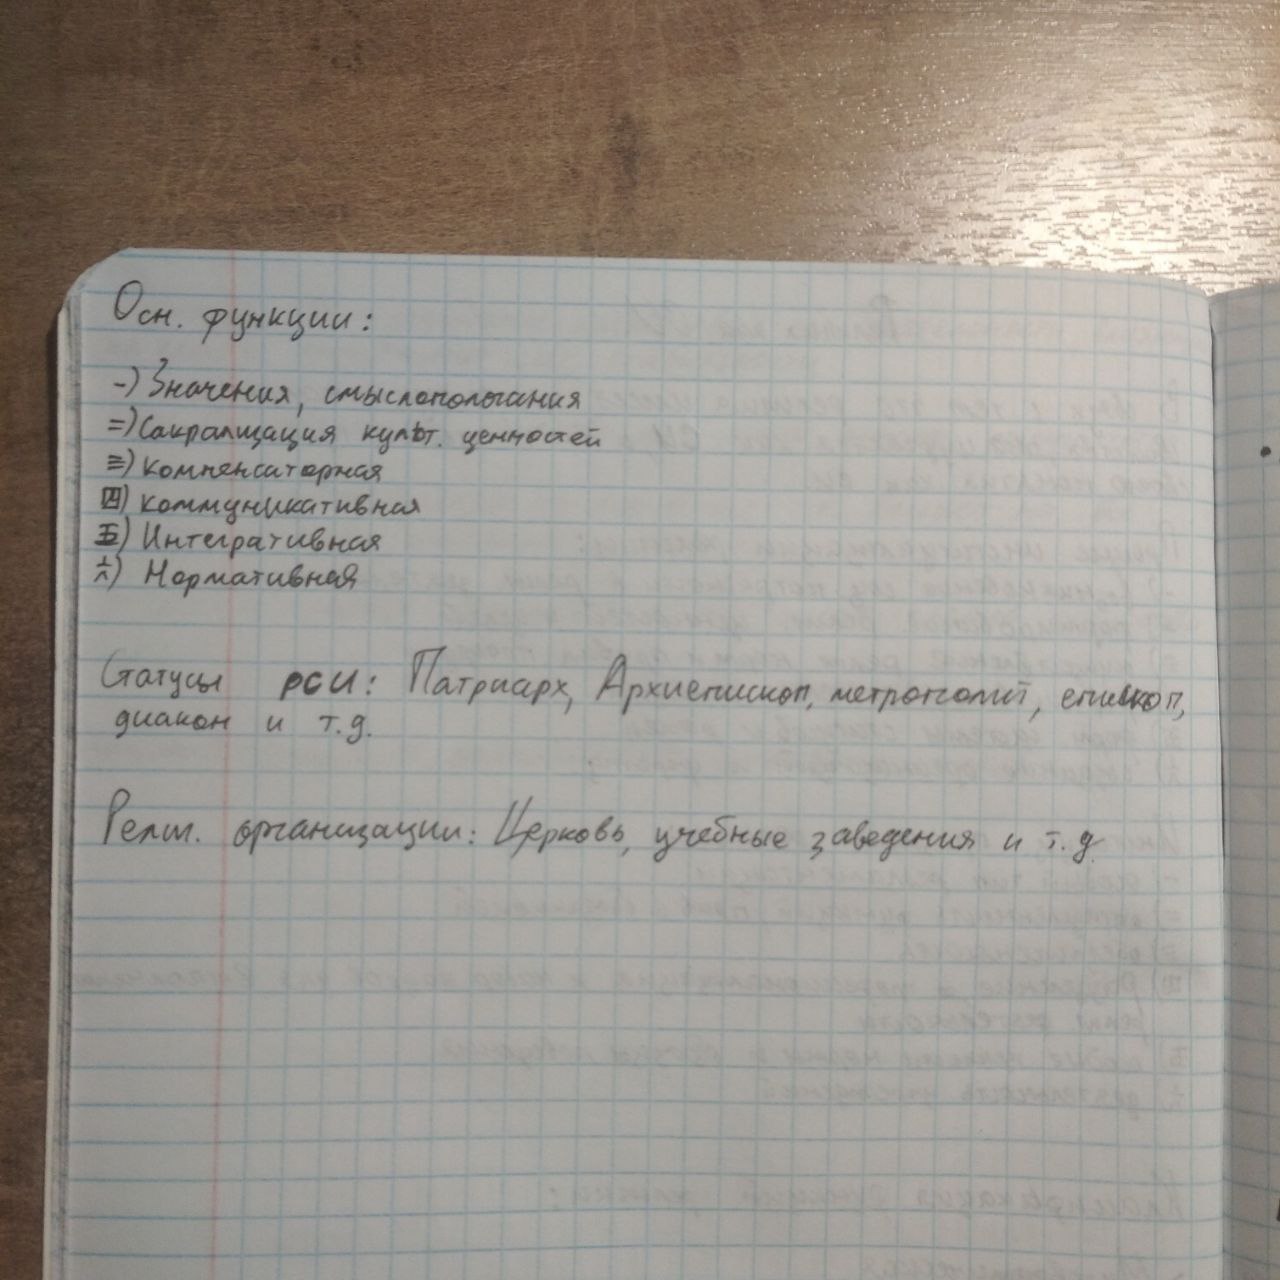 Осн. функции:
一) Значения, смыслопологания
二) Сакрализация культ. ценностей
三) компенсаторная
四) коммуникативная
五) Интегративная
六) Нормативная
Статусы РСИ: Патриарх, Архиепископ, метрополит, епископ,
диакон и т.д.
Религ. организации: Церковь, учебные заведения и т.д.